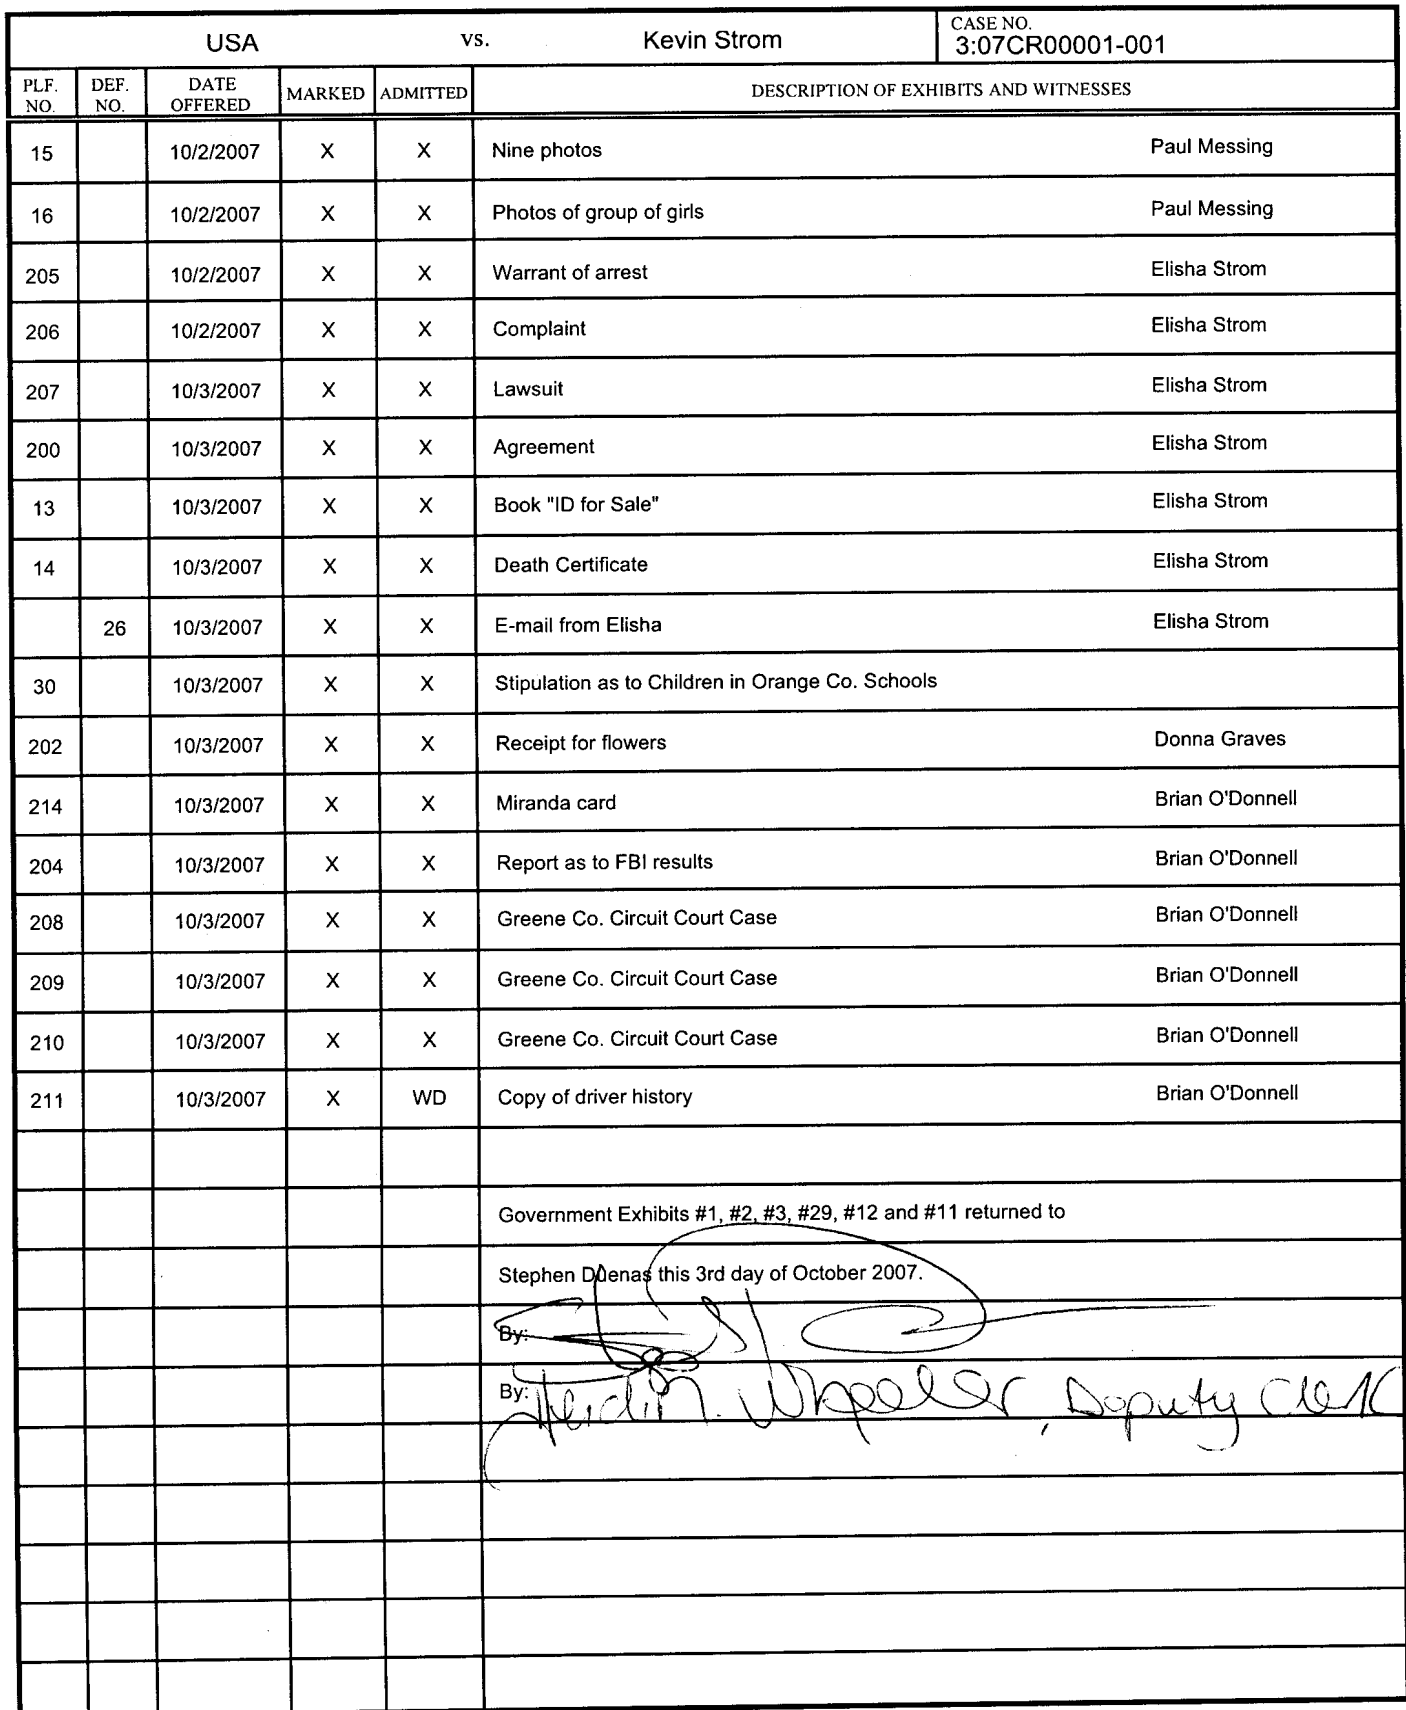 USA vs. Kevin Strom CASE NO. 3:07CR00001-001
PLF. NO. DEF. NO. DATE OFFERED MARKED ADMITTED DESCRIPTION OF EXHIBITS AND WITNESSES
15 10/2/2007 X X Nine photos Paul Messing
16 10/2/2007 X X Photos of group of girls Paul Messing
205 10/2/2007 X X Warrant of arrest Elisha Strom
206 10/2/2007 X X Complaint Elisha Strom
207 10/3/2007 X X Lawsuit Elisha Strom
200 10/3/2007 X X Agreement Elisha Strom
13 10/3/2007 X X Book "ID for Sale" Elisha Strom
14 10/3/2007 X X Death Certificate Elisha Strom
26 10/3/2007 X X E-mail from Elisha Elisha Strom
30 10/3/2007 X X Stipulation as to Children in Orange Co. Schools
202 10/3/2007 X X Receipt for flowers Donna Graves
214 10/3/2007 X X Miranda card Brian O'Donnell
204 10/3/2007 X X Report as to FBI results Brian O'Donnell
208 10/3/2007 X X Greene Co. Circuit Court Case Brian O'Donnell
209 10/3/2007 X X Greene Co. Circuit Court Case Brian O'Donnell
210 10/3/2007 X X Greene Co. Circuit Court Case Brian O'Donnell
211 10/3/2007 X WD Copy of driver history Brian O'Donnell
Government Exhibits #1, #2, #3, #29, #12 and #11 returned to
Stephen Duenas this 3rd day of October 2007.
By:
By: Heidi N. Wheeler, Deputy Clerk